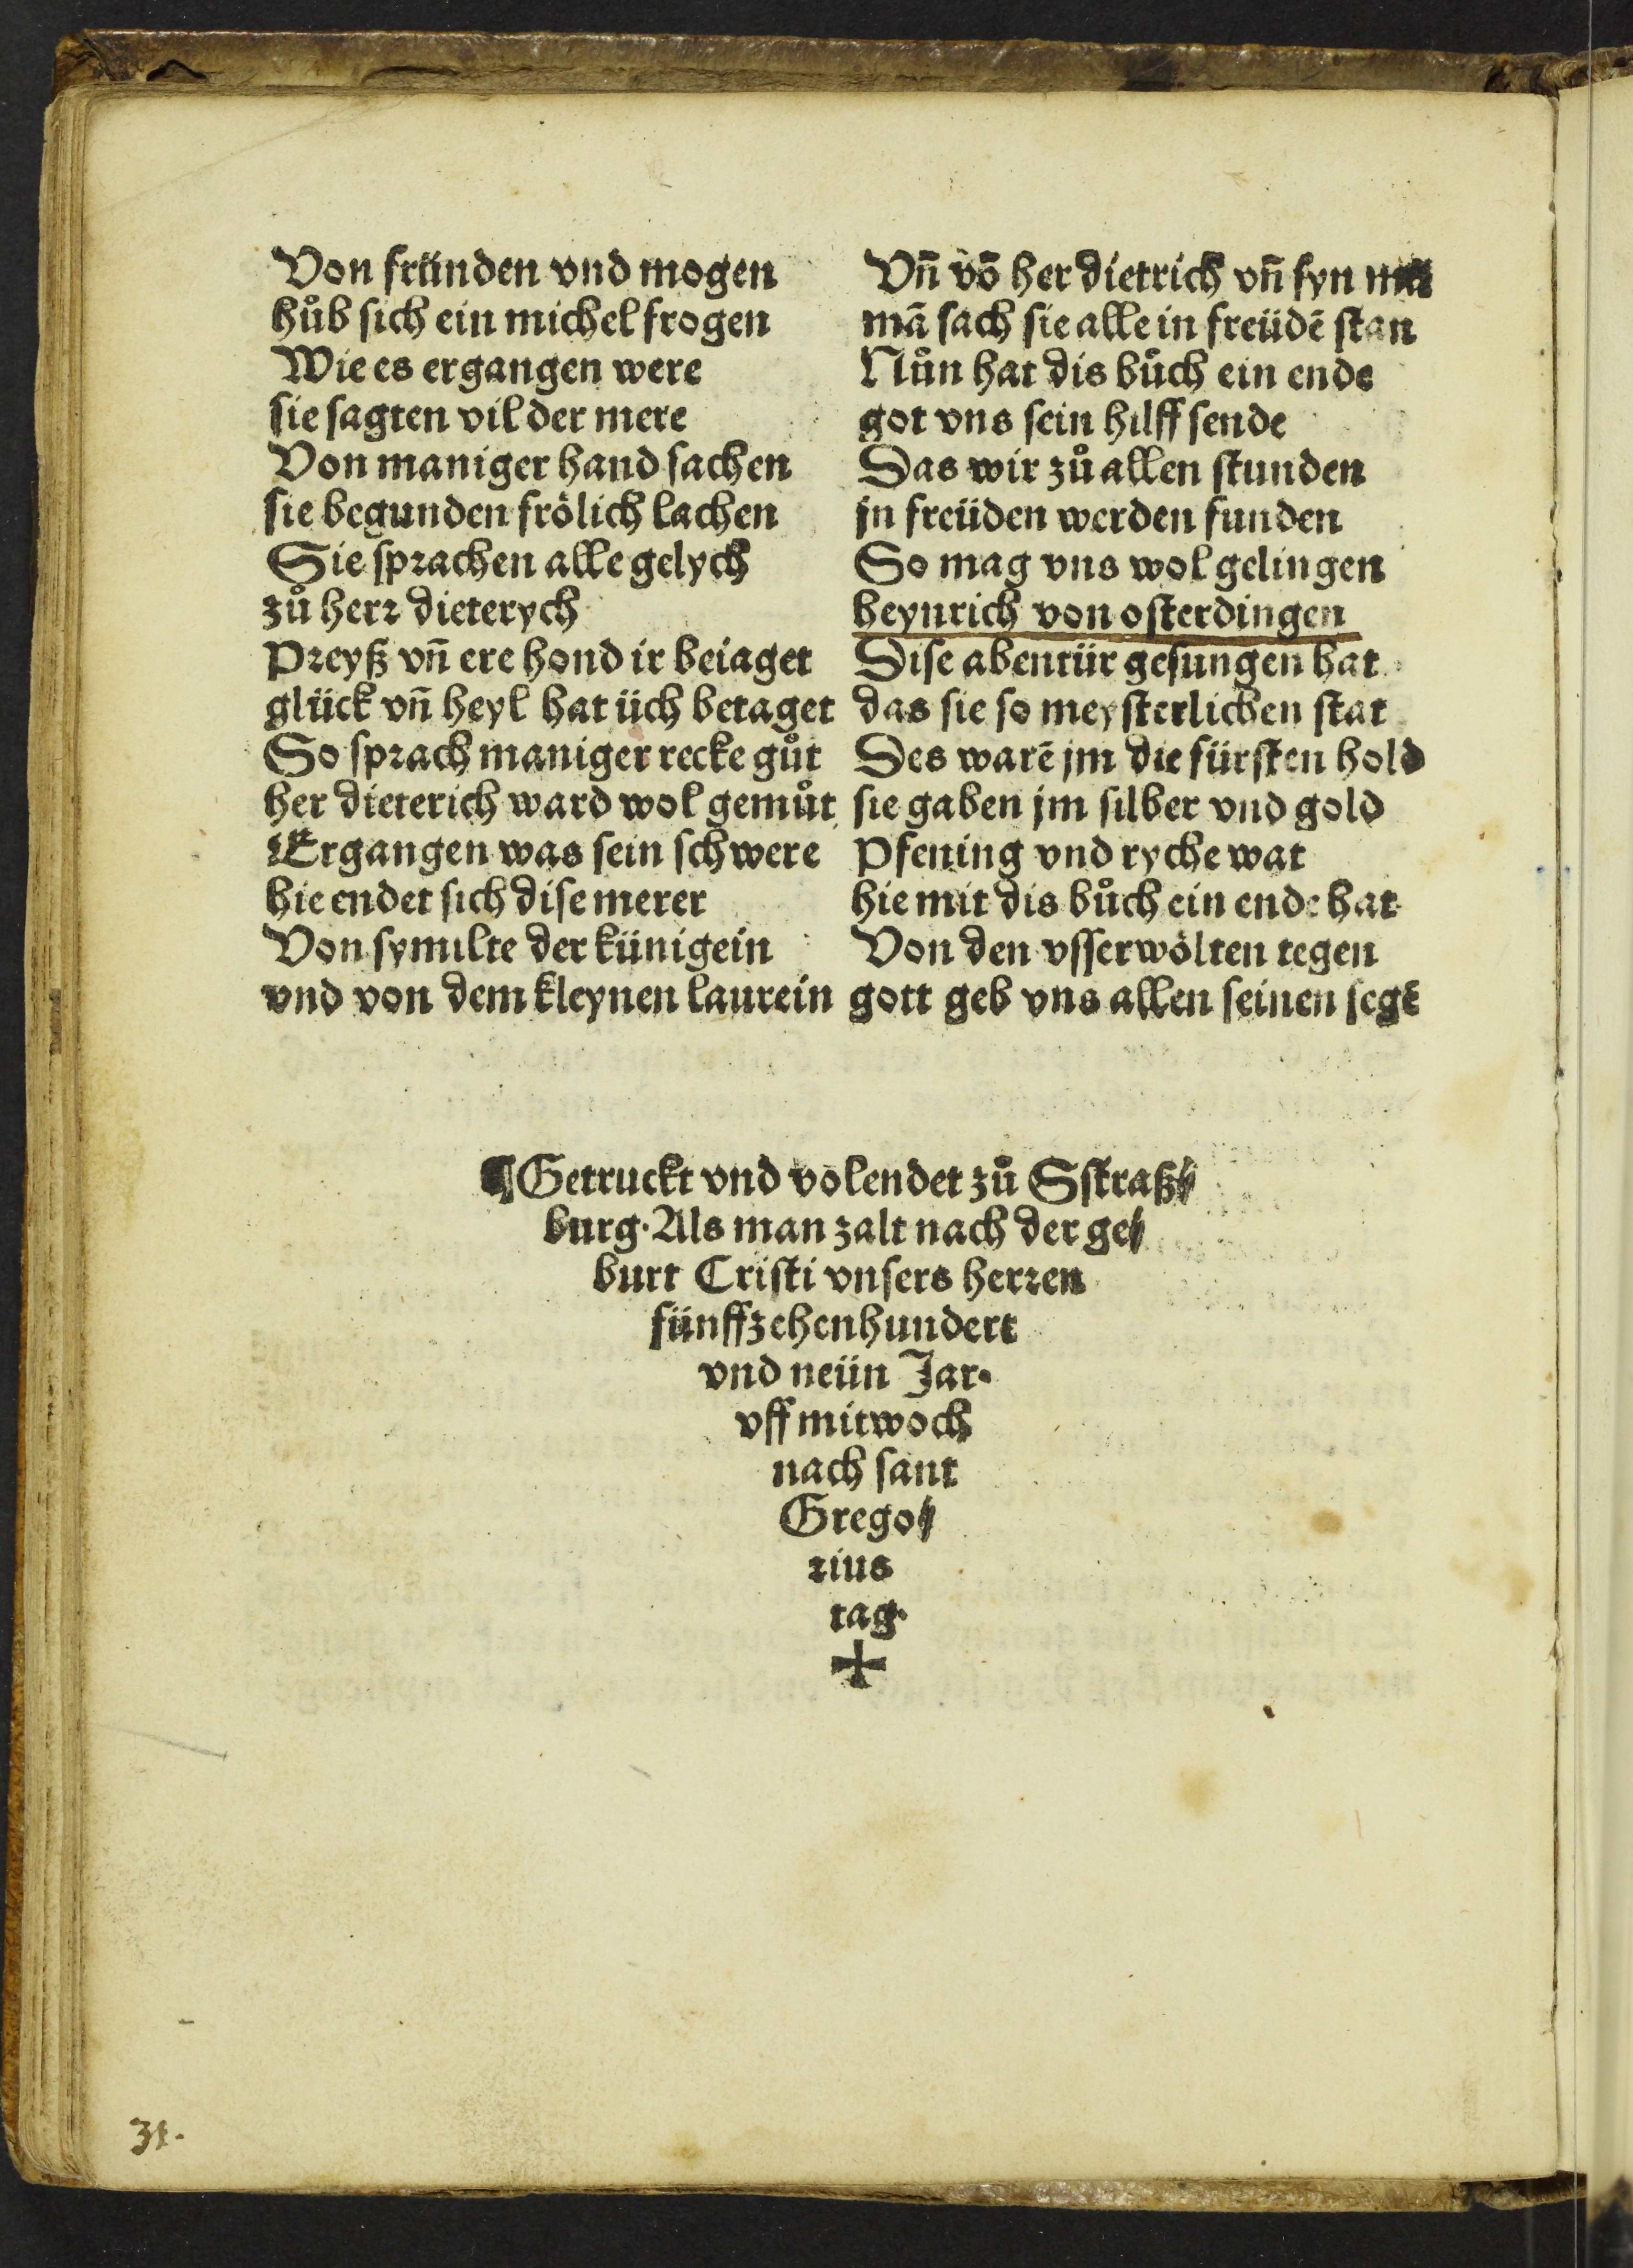 Von fründen vnd mogen
hůb sich ein michel frogen
Wie es ergangen were
sie sagten vil der mere
Von maniger hand sachen
sie begunden frölich lachen
Sie sprachen alle gelych
zů herr dieterych
Preyß vñ ere hond ir beiaget
glück vñ heyl hat üch betaget
So sprach maniger recke gůt
her dieterich ward wol gemůt
Ergangen was sein schwere
hie endet sich dise merer
Von symilte der künigein
vnd von dem kleynen laurein
Vñ vō her dietrich vñ syn
mā sach sie alle in freüdē stan
Nůn hat dis bůch ein ende
got vns sein hilff sende
Das wir zů allen stunden
jn freüden werden funden
So mag vns wol gelingen
heynrich von osterdingen
Dise abentür gesungen hat
das sie so meysterlichen stat
Des warē jm die fürsten hold
sie gaben jm silber vnd gold
Pfening vnd ryche wat
hie mit dis bůch ein ende hat
Von den vsserwölten tegen
gott geb vns allen seinen segē
¶Getruckt vnd volendet zů Sstraß⸗
burg. Als man zalt nach der ge⸗
burt Cristi vnsers herren
fünffzehenhundert
vnd neün Jar.
vff mitwoch
nach sant
Grego⸗
rius
tag.
✠
31.